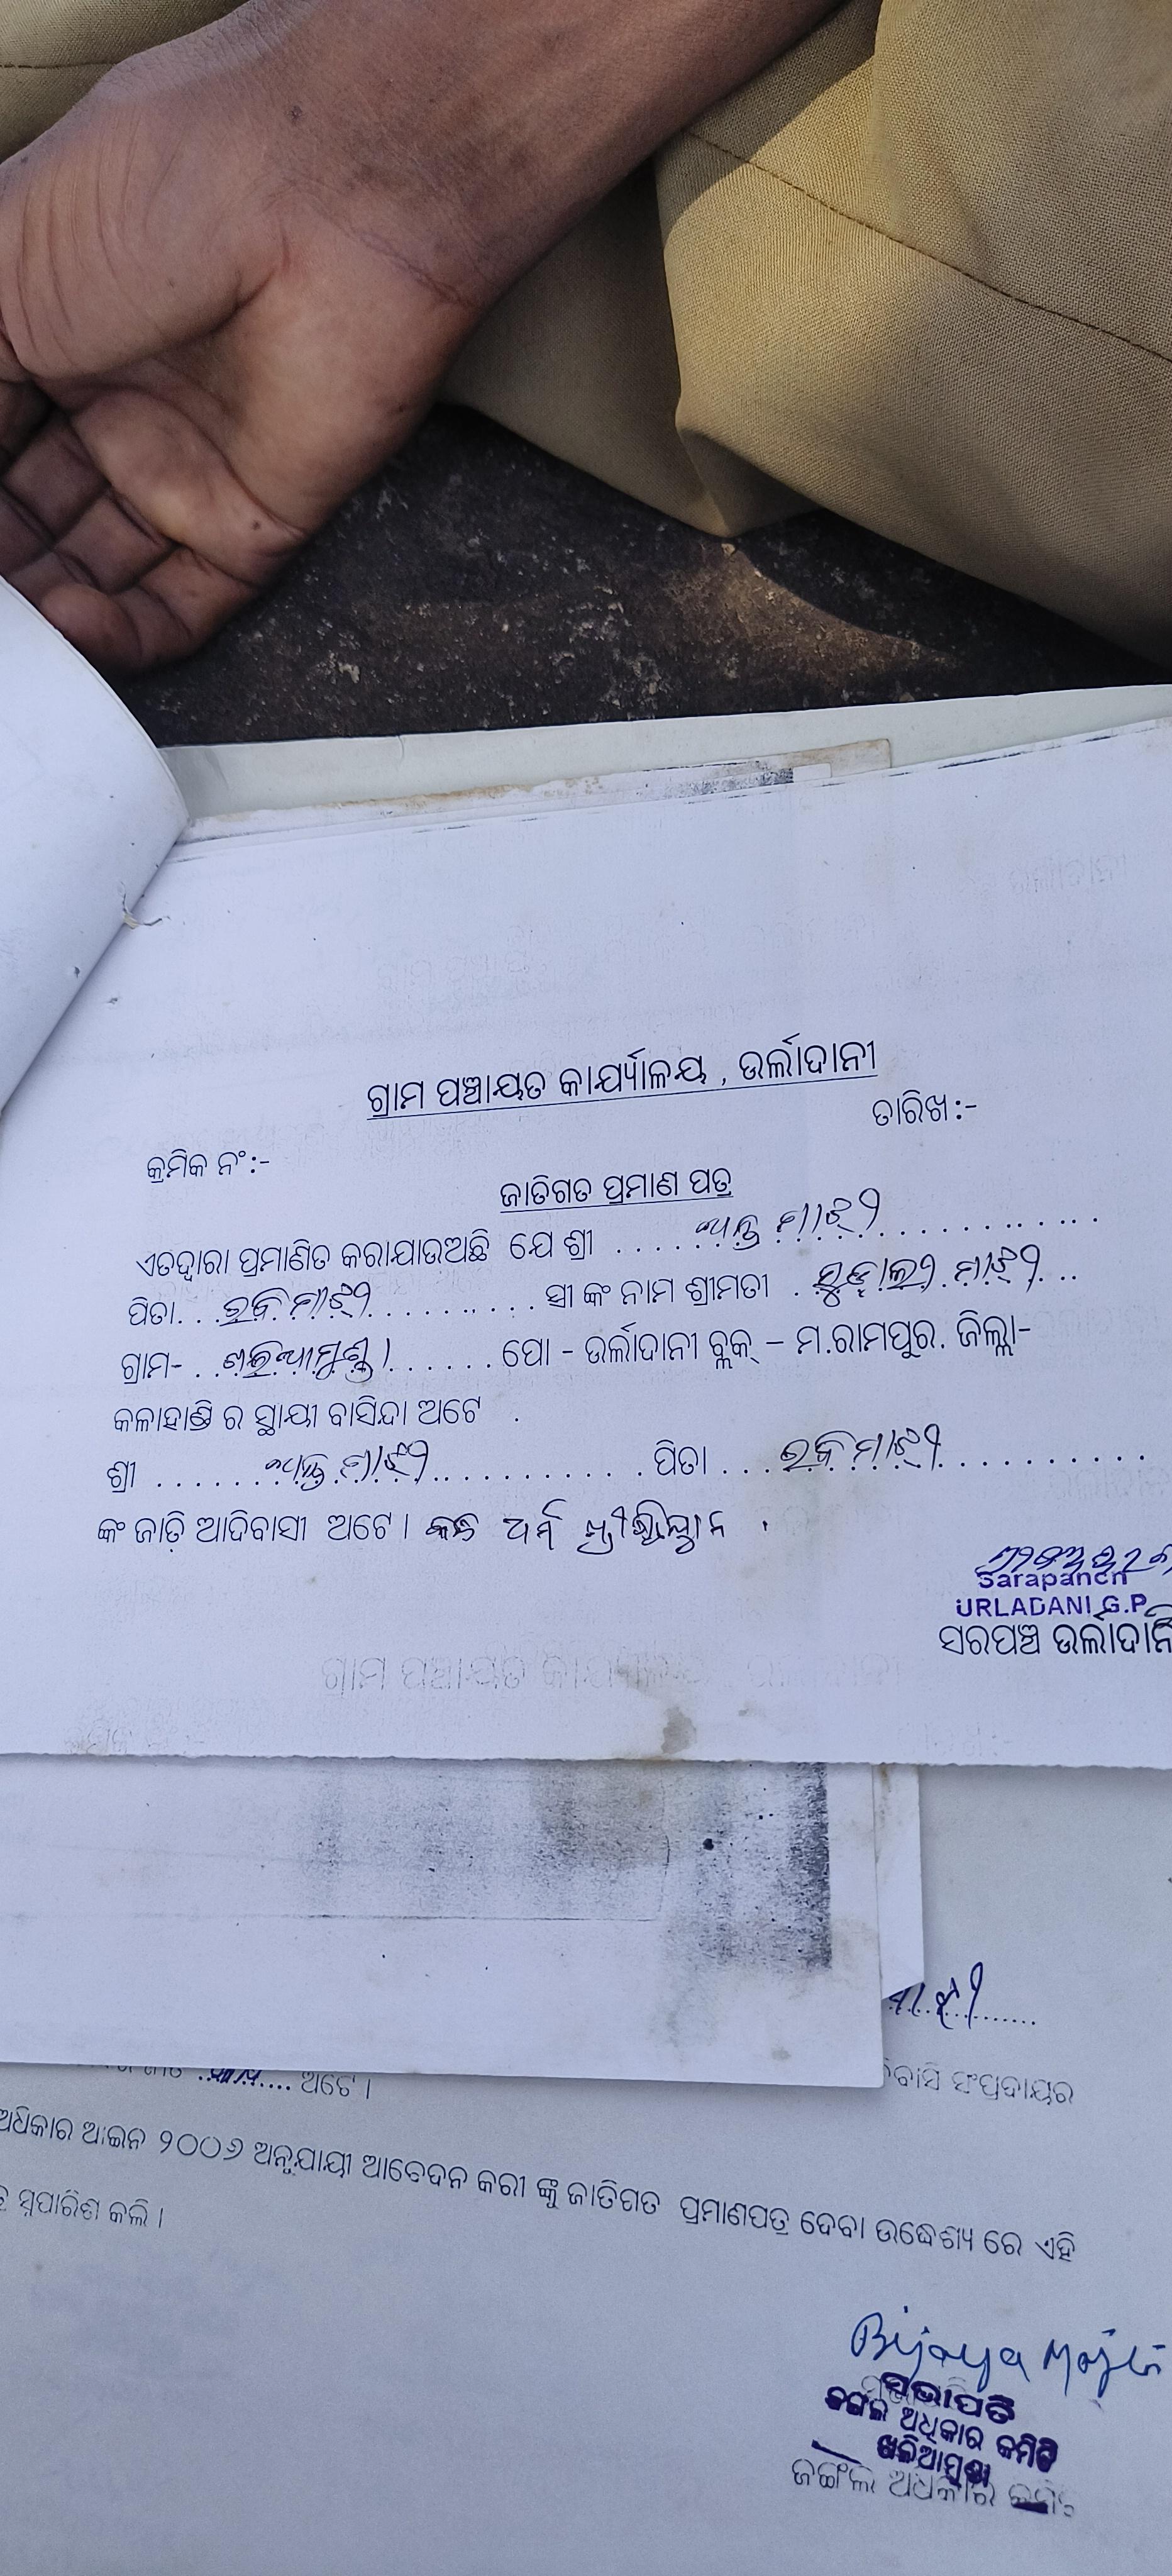 ଗ୍ରାମ ପଞ୍ଚାୟତ କାର୍ଯ୍ୟାଳୟ , ଉର୍ଲାଦାନୀ
ତାରିଖ:-
କ୍ରମିକ ନଂ:-
ଜାତିଗତ ପ୍ରମାଣ ପତ୍ର
ଏତଦ୍ୱାରା ପ୍ରମାଣିତ କରାଯାଉଅଛି ଯେ ଶ୍ରୀ .... ମାଝୀ ..........
ପିତା... ରବି ମାଝୀ .......... ସ୍ତ୍ରୀ ଙ୍କ ନାମ ଶ୍ରୀମତୀ . ମାଝୀ ...
ଗ୍ରାମ- .. ଖଲିଆମୁଣ୍ଡା ...... ପୋ - ଉର୍ଲାଦାନୀ ବ୍ଲକ୍ – ମ.ରାମପୁର. ଜିଲ୍ଲା-
କଳାହାଣ୍ଡି ର ସ୍ଥାୟୀ ବାସିନ୍ଦା ଅଟେ .
ଶ୍ରୀ ....... ମାଝୀ ........... ପିତା ... ରବି ମାଝୀ ...........
ଙ୍କ ଜାତି ଆଦିବାସୀ ଅଟେ। ଧର୍ମ ଖ୍ରୀଷ୍ଟିୟାନ .
Sarapanch
URLADANI G.P
ସରପଞ୍ଚ ଉର୍ଲାଦାନି
ମାଝୀ ......
ବାସି ସଂପ୍ରଦାୟର
.... ଅଟେ।
ଅଧିକାର ଆଇନ ୨୦୦୬ ଅନୁଯାୟୀ ଆବେଦନ କରୀ ଙ୍କୁ ଜାତିଗତ ପ୍ରମାଣପତ୍ର ଦେବା ଉଦ୍ଧେଶ୍ୟ ରେ ଏହି
ସୁପାରିଶ କଲି।
Bijaya Majhi
ସଭାପତି
ଜଙ୍ଗଲ ଅଧିକାର କମିଟି
ଖଲିଆମୁଣ୍ଡା
ଜଙ୍ଗଲ ଅଧିକାର